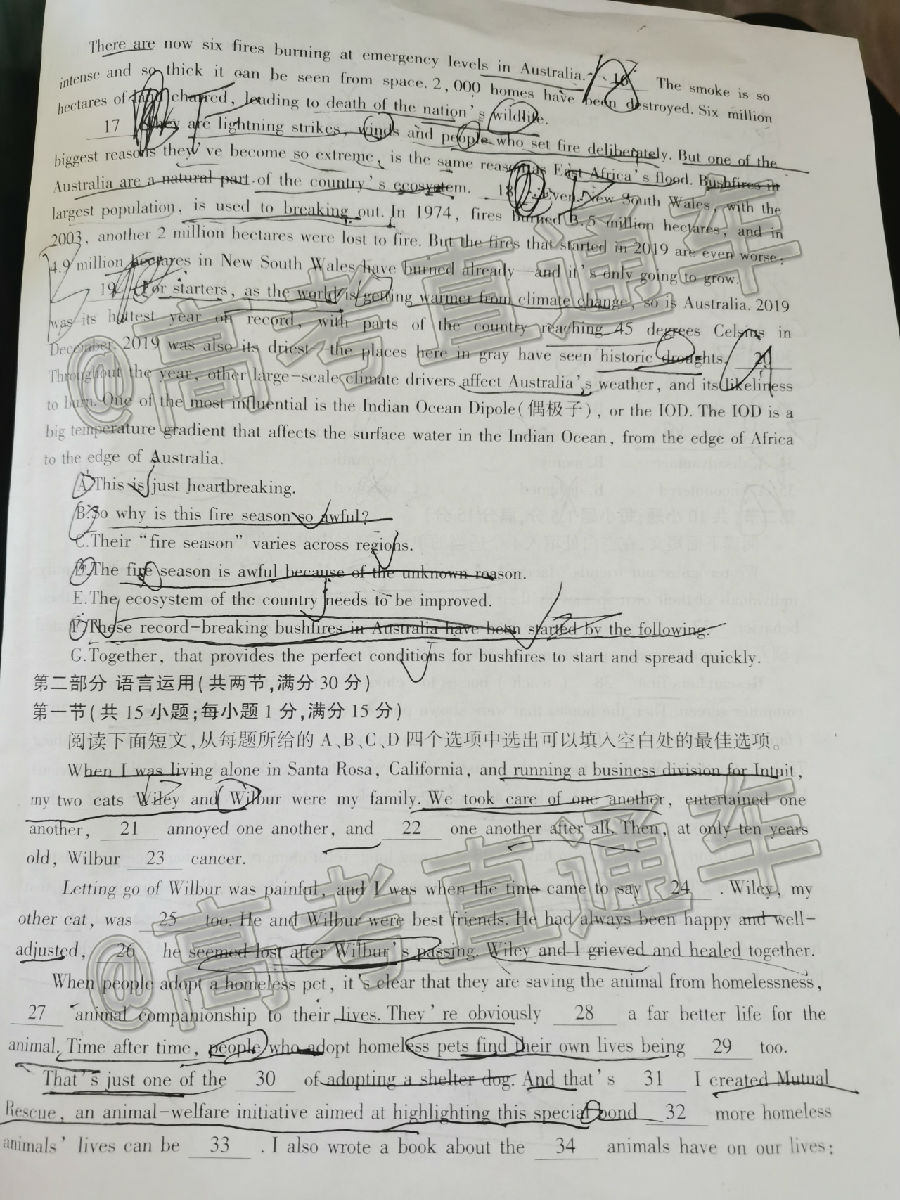 There are now six fires burning at emergency levels in Australia. 16 The smoke is so
intense and so thick it can be seen from space. 2,000 homes have been destroyed. Six million
hectares of land charred, leading to death of the nation's wildlife.
17 They are lightning strikes, winds and people who set fire deliberately. But one of the
biggest reasons they've become so extreme, is the same reason as East Africa's flood. Bushfires in
Australia are a natural part of the country's ecosystem. 18 even New South Wales, with the
largest population, is used to breaking out. In 1974, fires burned 3.5 million hectares, and in
2003, another 2 million hectares were lost to fire. But the fires that started in 2019 are even worse:
4.9 million hectares in New South Wales have burned already and it's only going to grow.
19 For starters, as the world is getting warmer from climate change, so is Australia. 2019
was its hottest year on record, with parts of the country reaching 45 degrees Celsius in
December. 2019 was also its driest the places here in gray have seen historic droughts. 20
Throughout the year, other large-scale climate drivers affect Australia's weather, and its likeliness
to burn. One of the most influential is the Indian Ocean Dipole(偶极子), or the IOD. The IOD is a
big temperature gradient that affects the surface water in the Indian Ocean, from the edge of Africa
to the edge of Australia.
A. This is just heartbreaking.
B. So why is this fire season so awful?
C. Their "fire season" varies across regions.
D. The fire season is awful because of the unknown reason.
E. The ecosystem of the country needs to be improved.
F. These record-breaking bushfires in Australia have been started by the following.
G. Together, that provides the perfect conditions for bushfires to start and spread quickly.
第二部分 语言运用(共两节,满分 30 分)
第一节(共 15 小题;每小题 1 分,满分 15 分)
阅读下面短文,从每题所给的 A、B、C、D 四个选项中选出可以填入空白处的最佳选项。
When I was living alone in Santa Rosa, California, and running a business division for Intuit,
my two cats Wiley and Wilbur were my family. We took care of one another, entertained one
another, 21 annoyed one another, and 22 one another after all. Then, at only ten years
old, Wilbur 23 cancer.
Letting go of Wilbur was painful, and I was when the time came to say 24 . Wiley, my
other cat, was 25 too. He and Wilbur were best friends. He had always been happy and well-
adjusted, 26 he seemed lost after Wilbur's passing. Wiley and I grieved and healed together.
When people adopt a homeless pet, it's clear that they are saving the animal from homelessness,
27 animal companionship to their lives. They're obviously 28 a far better life for the
animal. Time after time, people who adopt homeless pets find their own lives being 29 too.
That's just one of the 30 of adopting a shelter dog. And that's 31 I created Mutual
Rescue, an animal-welfare initiative aimed at highlighting this special bond 32 more homeless
animals' lives can be 33 . I also wrote a book about the 34 animals have on our lives:
@高考直通车
@高考直通车